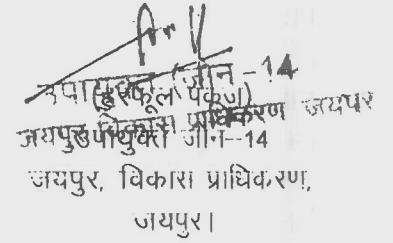 उपायुक्त (जोन-14
(हरफूल पंकज)
जयपुर विकास प्राधिकरण जयपुर
उपायुक्त जोन-14
जयपुर, विकास प्राधिकरण,
जयपुर।